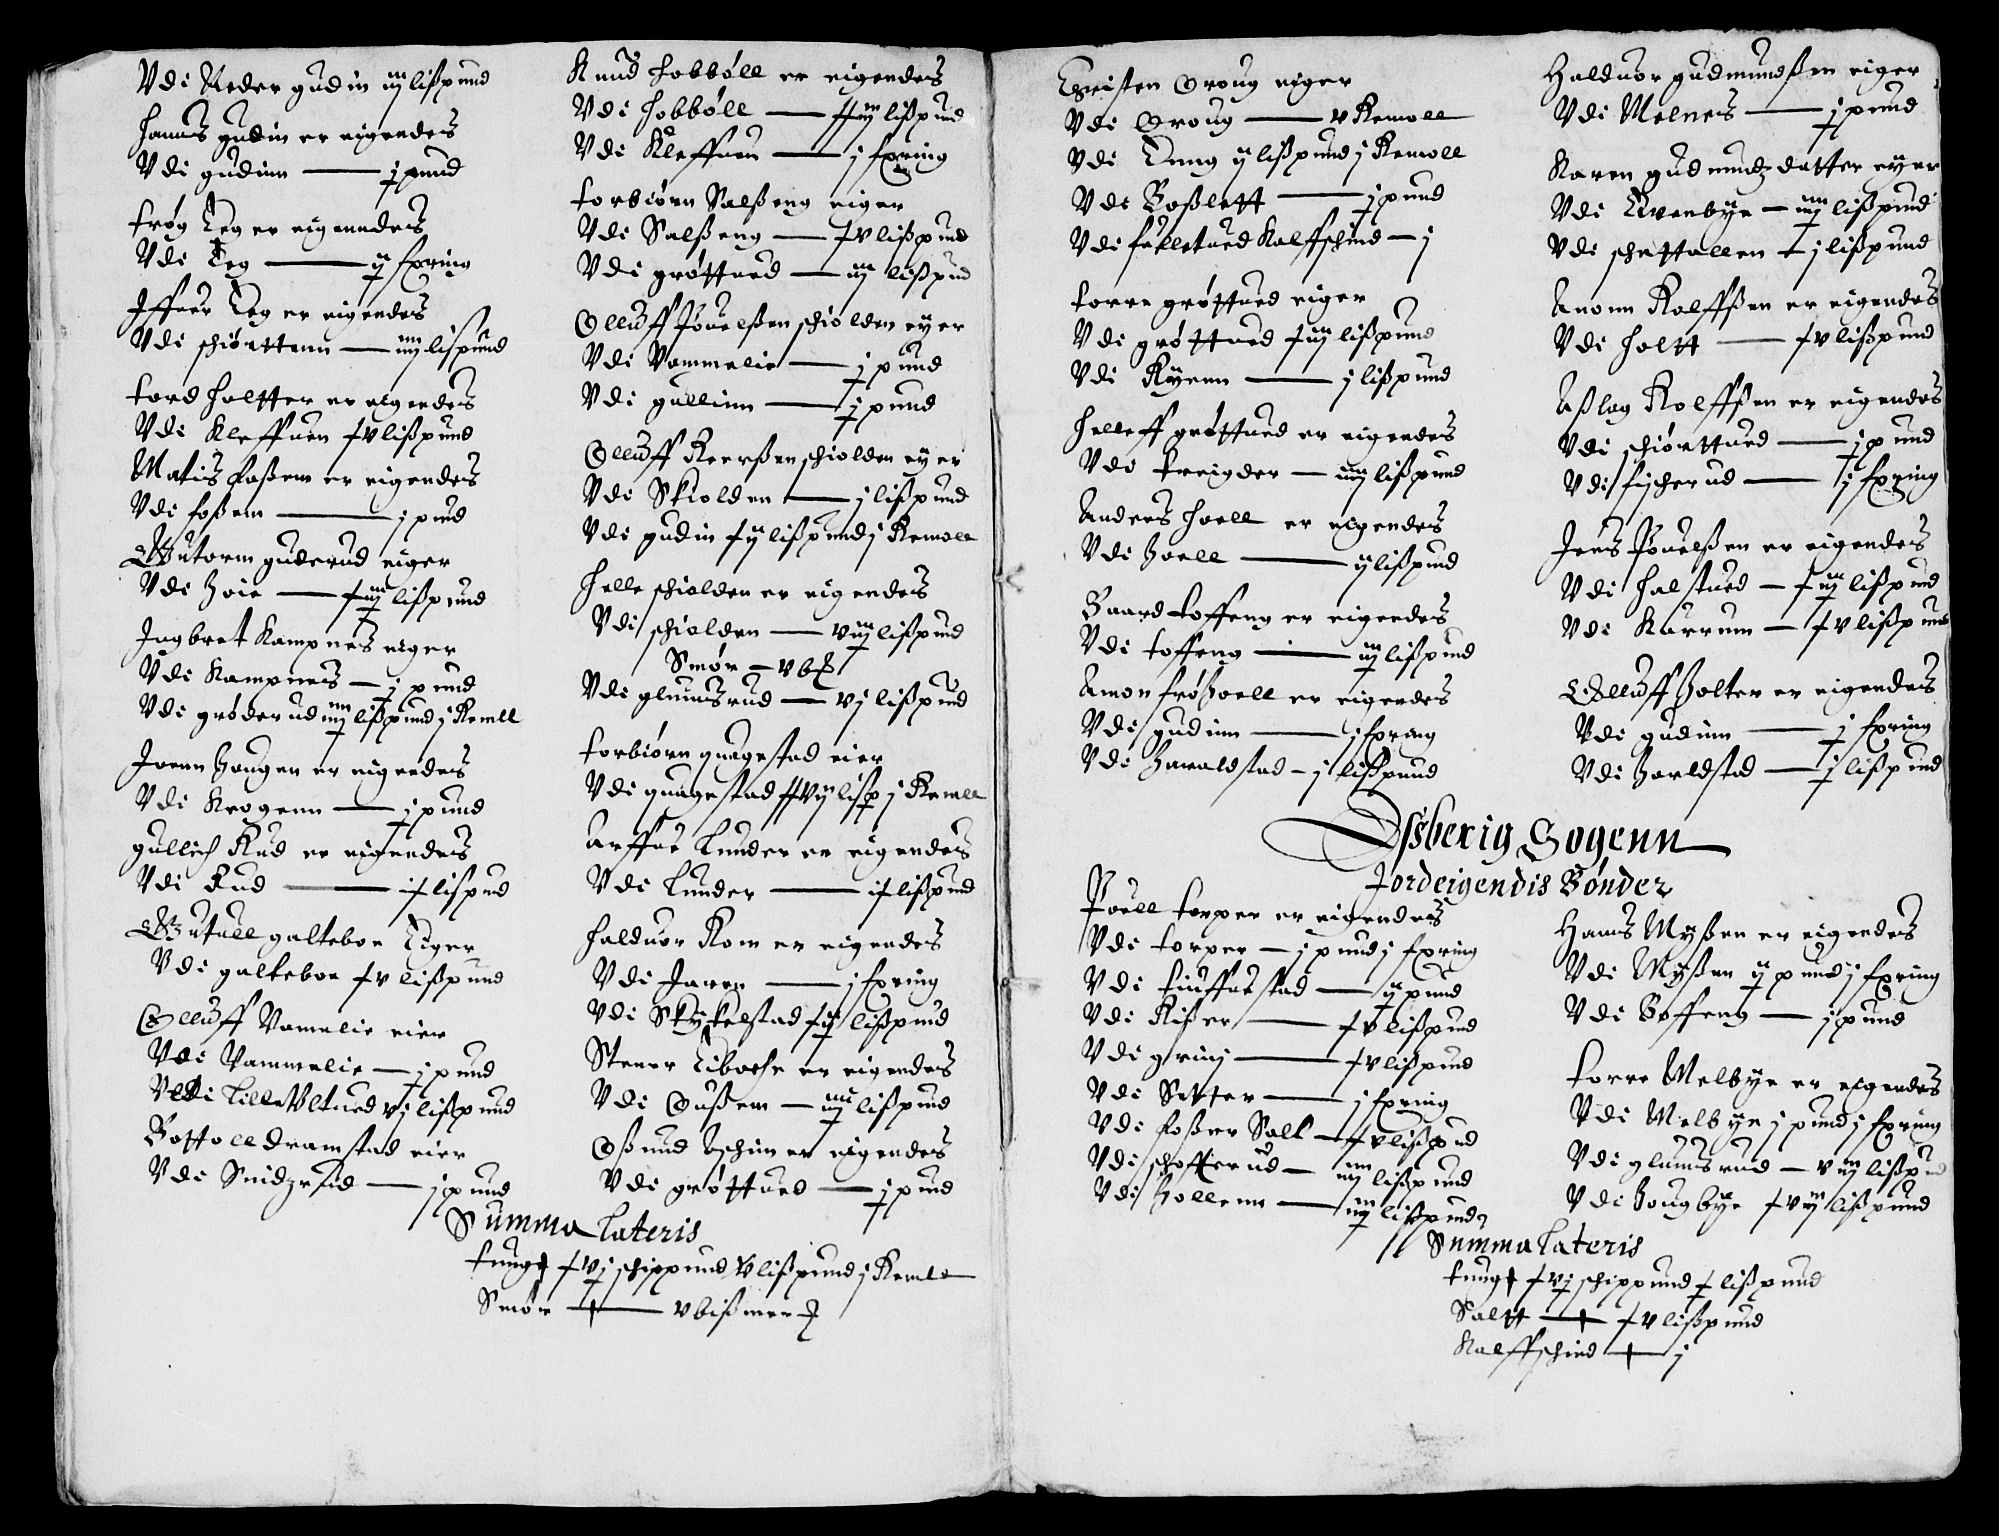 Vdi Neder gudin iiij lißpund
Hanns gudin er eigendes
Vdi gudinn — j pund
Frøg Teg er eigenndes
Vdi Teg — ij fxring
Iffuer Teg er eigendes
Vdi schiørttenn — iiij lispund
Tord Holtter er eigendes
Vdi Kleffuen Xv lißpund
Matis Foßem er eigendes
Vdi foßem — j pund
Gutorm guderud eiger
Vdi Hoie — Xiiij lißpund
Ingbret Kampnes eiger
Vdi Kampnes — j pund
Vdi grøderud iiij lißpund j Remll
Joenn Hougen er eigendes
Vdi Krogenn — j pund
gullich Rud er eigendes
Vdi Rud — iX lispund
Gutull galteboe Eiger
Vdi galteboe Xv lißpund
Olluff Vamelie eier
Vdi Vammelie — j pund
Vdi Lille Vltued vj lißpund
Bottoll dramstad eier
Vdi Smidzrud — j pund
Knud Hobbøll er eigendes
Vdi Hobbøll — Xiiij lißpund
Vdi Kleffuen — j fxring
Torbiørn Salßeng eiger
Vdi Salßeng — Xv lißpund
Vdi grøttued — iiij lißpund
Olluff Pouelßen schiolden eyer
Vdi Vammelie — j pund
Vdi gullinn — j pund
Olluff Reerßen schiolden eyer
Vdi Skiolden — j lißpund
Vdi gudin Xij lißpund j Remoll
Helle schiolden er eigendes
Vdi schiolden — viij lißpund
Smør — v b
Vdi glumsrud — vj lißpund
Torbiørn quagestad eier
Vdi quagestad XVij lisp j Remll
Arffue Lunder er eigendes
Vdi Lunder — iX lißpund
Halduor Rom er eigendes
Vdi Jaren — j fxring
Vdi Skykelstad Xij lißpund
Stener Liboche er eigendes
Vdi Oußem — iiij lißpund
Oßmund Askim er eigendes
Vdi grøttued — j pund
Summa Lateris
Tunge XVj schippund V lißpund j Remle
Smør — v bißmer
Christen Oroug eiger
Vdi Oroug — v Remoll
Vdi Eng ij lißpund j Remoll
Vdi Boßlett — j pund
Vdi fulletued Kalffschind — j
Torre grøttued eiger
Vdi grøttued Xiij lißpund
Vdi Ryenn — j lißpund
Helleff grøttued er eigendes
Vdi Treigder — iiij lißpund
Anders Hoell er eigendes
Vdi Hoell — ij lißpund
Baard Toffeng er eigendes
Vdi Toffeng — iiij lißpund
Amon frøßhoell er eigendes
Vdi gudinn — j fxrong
Vdi Haraldstad — j lißpund
Halduor gudmundßen eiger
Vdi Melnes — j pund
Karen gudmundz datter eyer
Vdi Euenbye — iiij lißpund
Vdi schattallen — j lißpund
Anonn Rolffßen er eigendes
Vdi Holtt — Xv lißpund
Aßlag Rolffßen er eigendes
Vdi schiørttued — j pund
Vdi fischerud — j fxring
Jens Pouelßen er eigendes
Vdi Halstued — Xiiij lißpund
Vdi Karrum — Xv lißpund
Olluff Holter er eigendes
Vdi gudinn — j fxring
Vdi Harldstad — j lißpund
Eßberig Sogenn
Jordeigendis Bønder
Pouell Torper er eigendes
Vdi Torper — j pund j fxring
Vdi Tiuffuestad — ij pund
Vdi Rißer — Xv lißpund
Vdi grinj — Xv lißpund
Vdi Setter — j fxring
Vdi Foßer Salt — Xv lißpud
Vdi schofferud — iiij lißpund
Vdi Hollenn — iiij lißpund
Hans Myßen er eigendes
Vdi Myßen ij pund j fxring
Vdi Boffeng — j pund
Torre Melbye er eigendes
Vdi Melbye j pund j fxring
Vdi glumsrud — viij lißpund
Vdi Hougbye Xvij lißpund
Summa Lateris
Tunge XVj schippund X lißpund
Saltt — Xv lißpund
Kalffschind — j